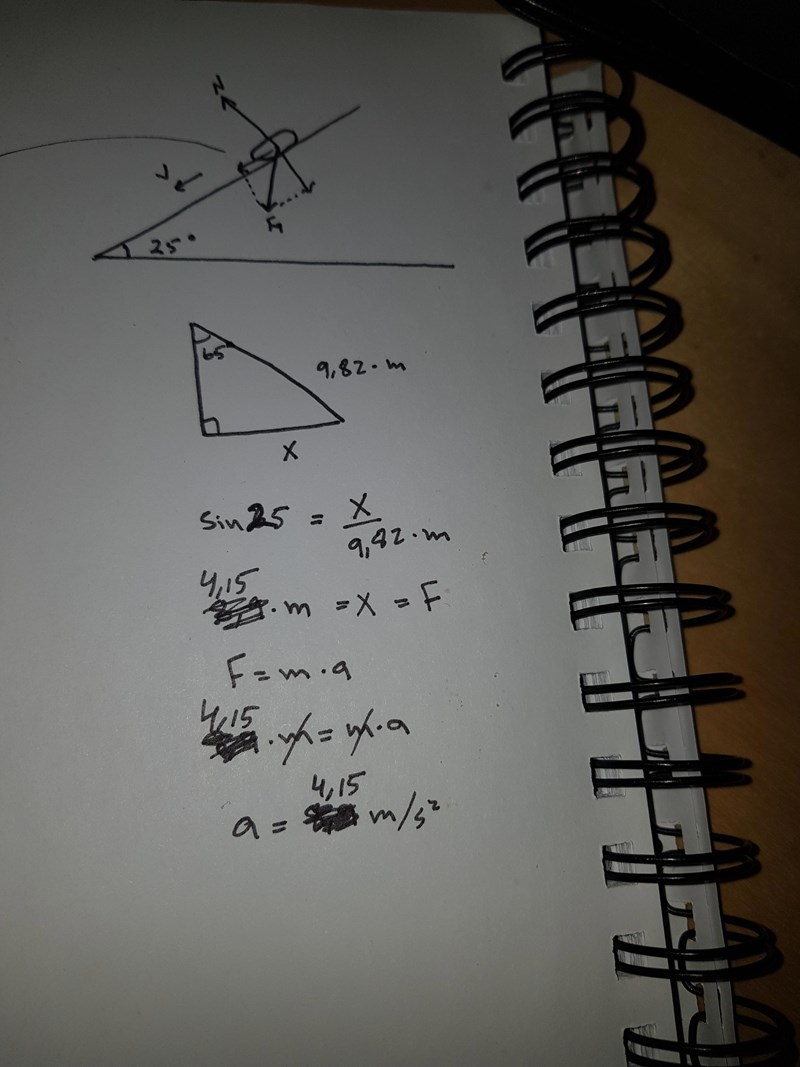 N
V
F₁
25°
65
9,82·m
X
sin25 = X / 9,82·m
4,15
·m = X = F
F = m·a
4,15
·m = m·a
4,15
a = m/s²